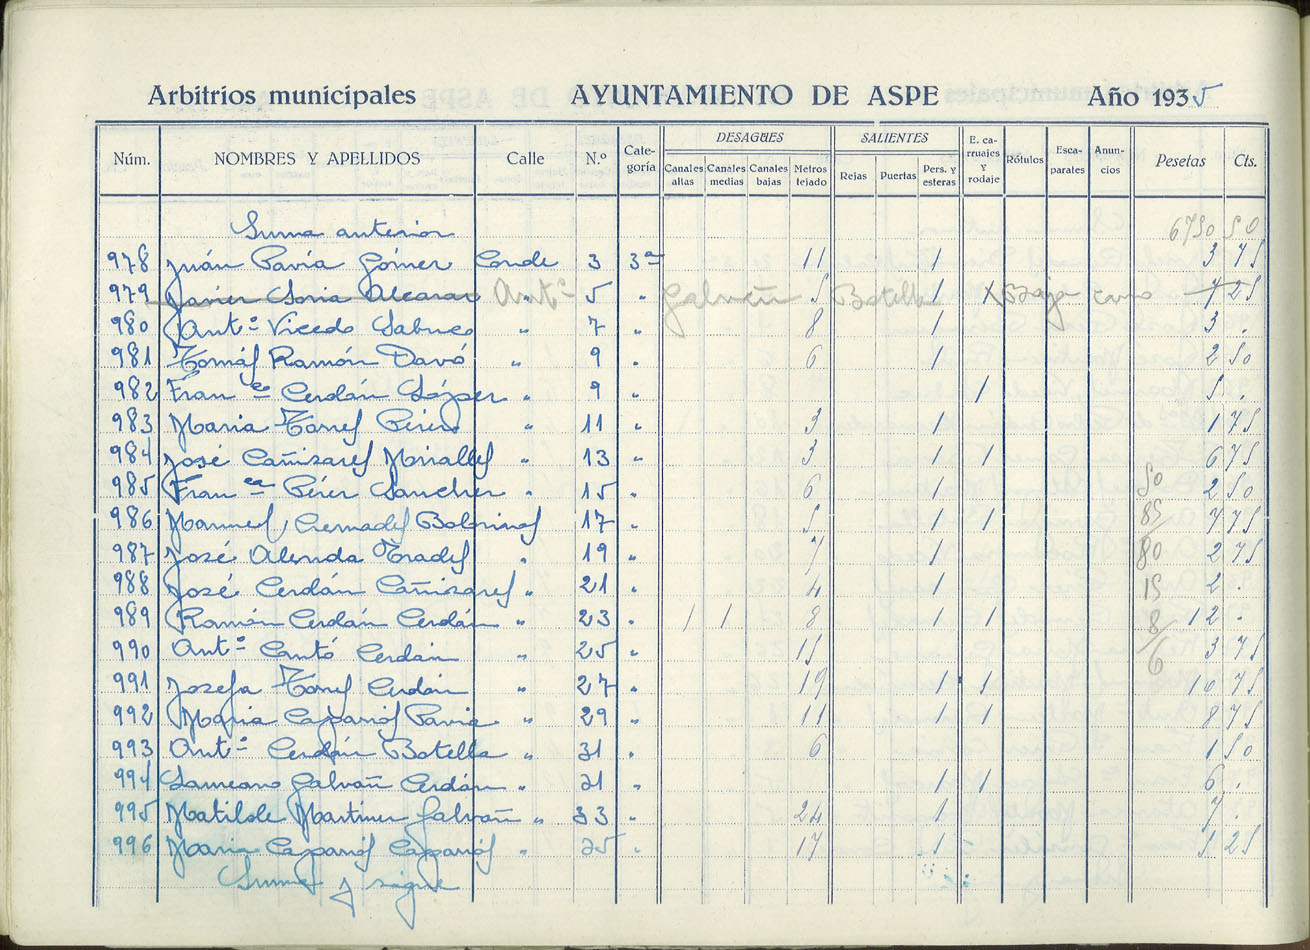 Arbitrios municipales AYUNTAMIENTO DE ASPE Año 1935
Núm. NOMBRES Y APELLIDOS Calle N.º Cate-goría DESAGÜES Canales altas Canales medias Canales bajas Metros tejado SALIENTES Rejas Puertas Pers. y esteras E. carruajes y rodaje Rótulos Esca-parates Anun-cios Pesetas Cts.
Suma anterior 6750 50
978 Juán Pavía Gómez Conde 3 3ª 11 1 3 75
979 Javier Soria Alcaraz Antº " 5 " Galvañ 5 Botella 1 X Baja carro 7 25
980 Antº Vicedo Sabuco " 7 " 8 1 3 .
981 Tomás Ramón Davó " 9 " 6 1 2 50
982 Franco Cerdán López " 9 " 1 5 .
983 Maria Torres Pérez " 11 " 3 1 1 75
984 José Cañizares Miralles " 13 " 3 1 1 6 75
985 Franca Pérez Sanchez " 15 " 6 1 2 50
986 Manuel Cremades 17 " 5 1 1 7 75
987 José Alenda Prades " 19 " 7 1 2 75
988 José Cerdán Cañizares " 21 " 4 1 2 .
989 Ramón Cerdán Cerdán " 23 " 1 1 8 1 1 12 .
990 Antº Cantó Cerdán " 25 " 15 3 75
991 Josefa Torres Cerdán " 27 " 19 1 1 10 75
992 Maria Caparrós Pavia " 29 " 11 1 1 8 75
993 Antº Cerdán Botella " 31 " 6 1 50
994 Galvañ Cerdán " 31 " 1 1 6 .
995 Matilde Martinez Galvañ " 33 " 24 1 7 .
996 Maria Caparrós Caparrós " 35 " 17 1 5 25
Suma y sigue
50
85
80
15
8
6